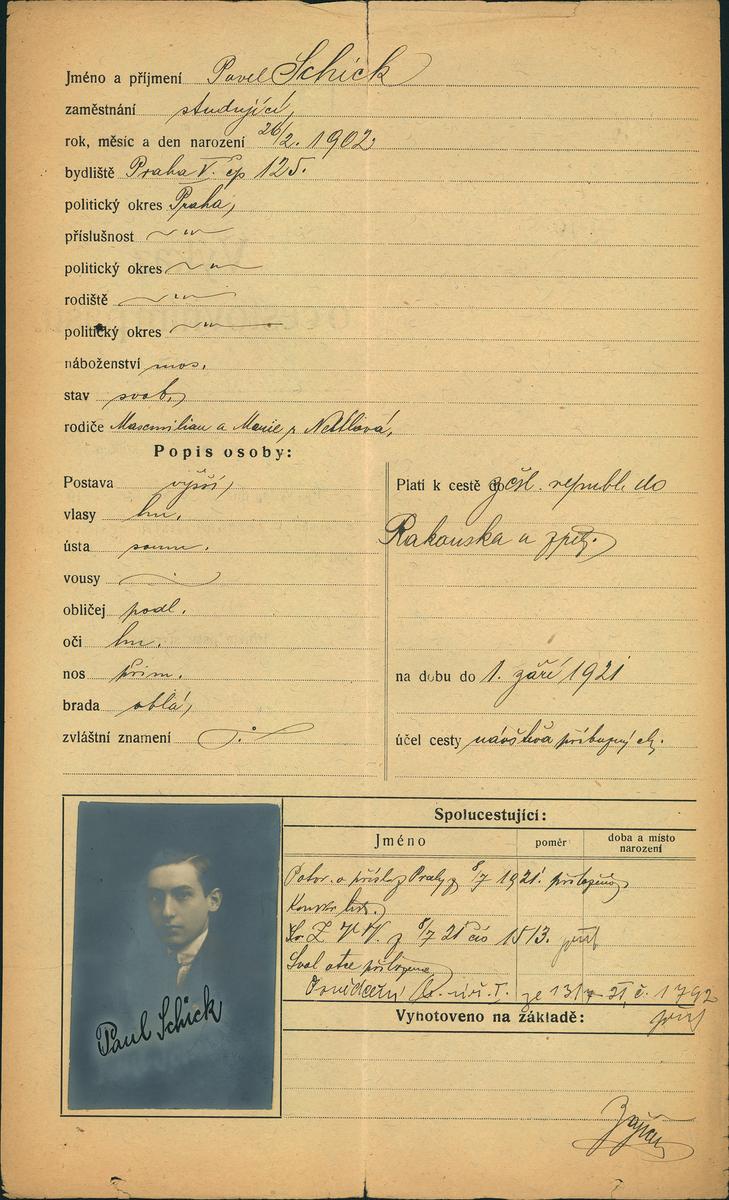 Jméno a příjmení Pavel Schick
zaměstnání studující,
rok, měsíc a den narození 26/2. 1902
bydliště Praha V. čp 125.
politický okres Praha,
příslušnost
politický okres
rodiště
politický okres
náboženství mos.
stav svob.
rodiče Maxmilian a Marie r. Nettlová,
Popis osoby:
Postava vyšší,
vlasy hn.
ústa soum.
vousy
obličej podl.
oči hn.
nos přim.
brada oblá,
zvláštní znamení
Platí k cestě do z čsl. republ. do
Rakouska a zpět.
na dobu do 1. září 1921
účel cesty návštěva příbuzných.
Spolucestující:
Jméno poměr doba a místo narození
Potvr. o přísluš. Prahy z 8/7 1921
Konskr. list.
z 8/7 21 čís 1513.
Svol otce přiloženo
Osvědčení ze 13/7 21, č. 1792
Vyhotoveno na základě:
Paul Schick